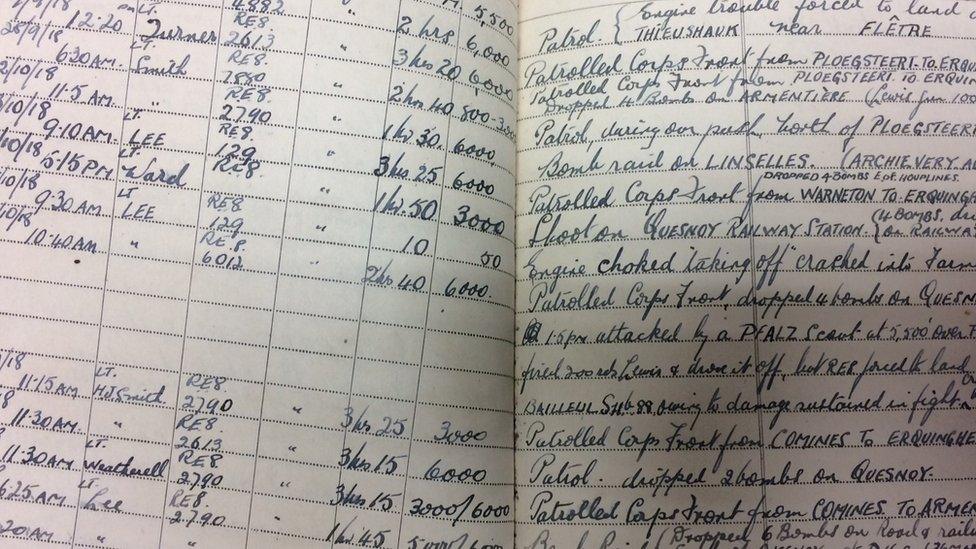 4882 5,500
12:20 Turner RE8 2613 " 2 hrs 6,000
28/9/18 6.30 AM. Lt. Smith RE8. 7880 " 3 hrs 20 6,000
2/10/18 11.5 AM. " RE8. 2790 " 2 hrs 40
/10/18 9.10 AM. Lt. LEE RE8 129 " 1 hr. 30. 6000
/10/18 5.15 PM Lt. Ward RE8. " 3 hrs 25 6000
/10/18 9.30 AM. Lt. LEE RE8 129 " 1 hr. 50 3000
/10/18 10.40 AM " RE8. 6012 " 10 50
2 hrs 40 6000
/18
11.15 AM Lt. HJ Smith RE8. 2790 " 3 hrs 25 3000
11.30 AM. " RE8 2613 " 3 hrs 15 6000
11.30 AM Lt. Weatherell RE8 2790 " 3 hrs 15 3000/6000
6.25 AM Lt. Lee RE8 2790 " 1 hr 45
20 AM. "
Engine trouble forced to land
Patrol. { THIEUSHAUK near FLÊTRE
Patrolled Corps Front from PLOEGSTEERT. TO ERQUI
Patrolled Corps Front from PLOEGSTEERT. TO ERQUI
Dropped 4 Bombs on ARMENTIÈRE (Lewis Gun 100
Patrol, during our push North of PLOEGSTEER
Bomb raid on LINSELLES. (ARCHIE. VERY. A
DROPPED 4 BOMBS E OF HOUPLINES.
Patrolled Corps Front from WARNETON TO ERQUING
Shoot on QUESNOY RAILWAY STATION. { 4 BOMBS.
on RAILWAY
Engine choked taking off crashed into Farm
Patrolled Corps Front, dropped 4 bombs on QUESN
1.5pm attacked by a PFALZ Scout at 5,500' over
fired 200 rds Lewis & drove it off, but RE8 forced to land
BAILLEUL owing to damage sustained in fight
Patrolled Corps Front from COMINES TO ERQUINGHE
Patrol. dropped 2 bombs on QUESNOY.
Patrolled Corps Front from COMINES TO ARMEN
Bomb Raid (Dropped 6 Bombs on Road & rail